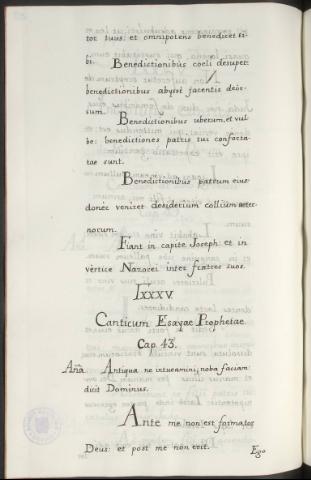 tor tuus: et omnipotens benedicet ti-
bi.  Benedictionibus coeli desuper:
benedictionibus abyssi jacentis deor-
sum.
Benedictionibus uberum, et vul-
be: benedictiones patris tui conforta-
tae sunt.
Benedictionibus patrum eius:
donec veniret desiderium collium aeter-
nocum.
Fiant in capite Joseph: et in
vertice Nazorei inter fratres suos.
LXXXV.
Canticum Esayae Prophetae
Cap. 43.
Aña. Antiqua ne intueamini; noba faciam
dicit Dominus.
Ante me non est formatos
Deus: et post me non erit.
Ego